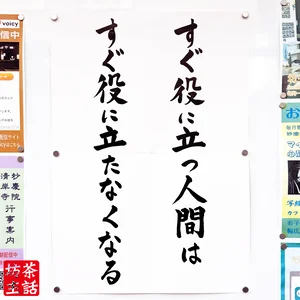 すぐ役に立つ人間は
すぐ役に立たなくなる
voicy
信中
妙慶院
清岸寺
行事案内
お
坊主
茶話